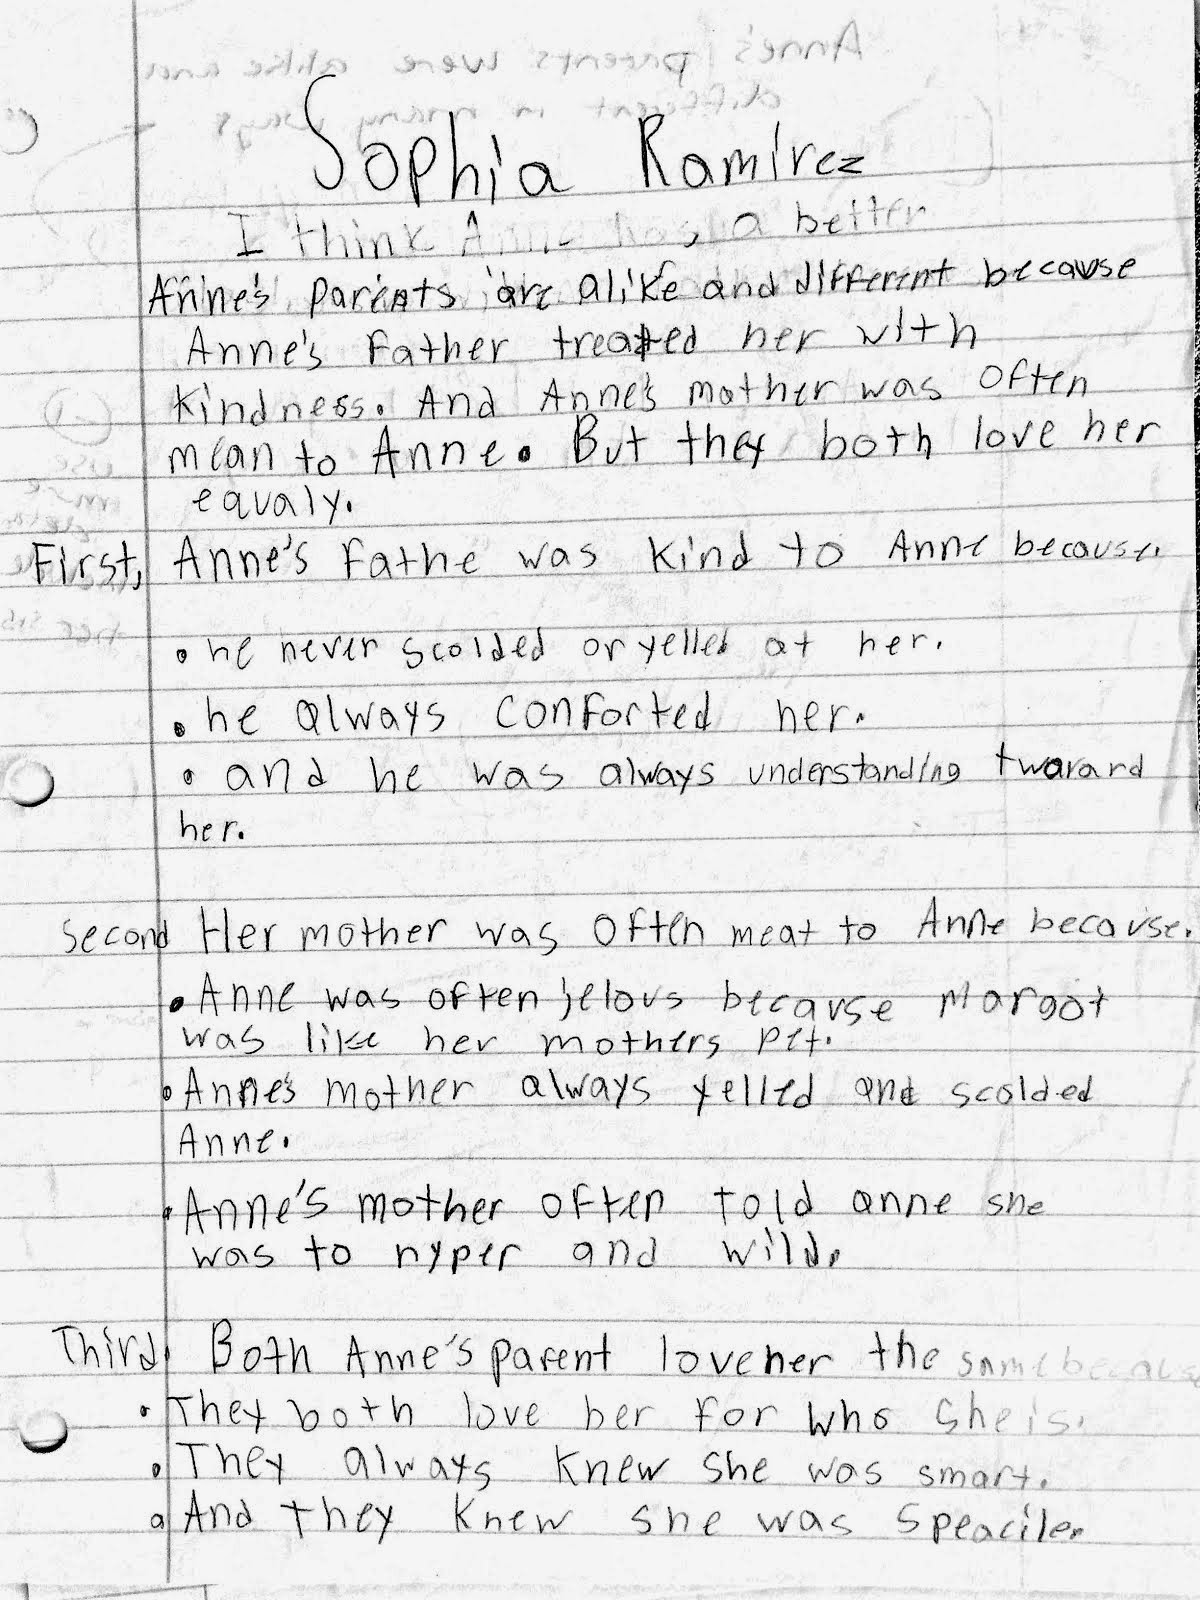 Anne's parents were alike and
different in many ways
Sophia Ramirez
I think Anne has a better
Anne's parents are alike and different because
Anne's Father treated her with
kindness. And Anne's mother was often
mean to Anne. But they both love her
equaly.
First, Anne's Fathe was kind to Anne because.
• he never scolded or yelled at her.
• he always conforted her.
• and he was always understanding twarard
her.
Second Her mother was often meat to Anne because.
• Anne was often jelous because Margot
was like her mothers pet.
• Anne's mother always yelled and scolded
Anne.
• Anne's mother often told anne she
was to hyper and wild.
Third, Both Anne's parent love her the same because
• They both love her for who she is.
• They always knew she was smart.
• And they knew she was speacile.